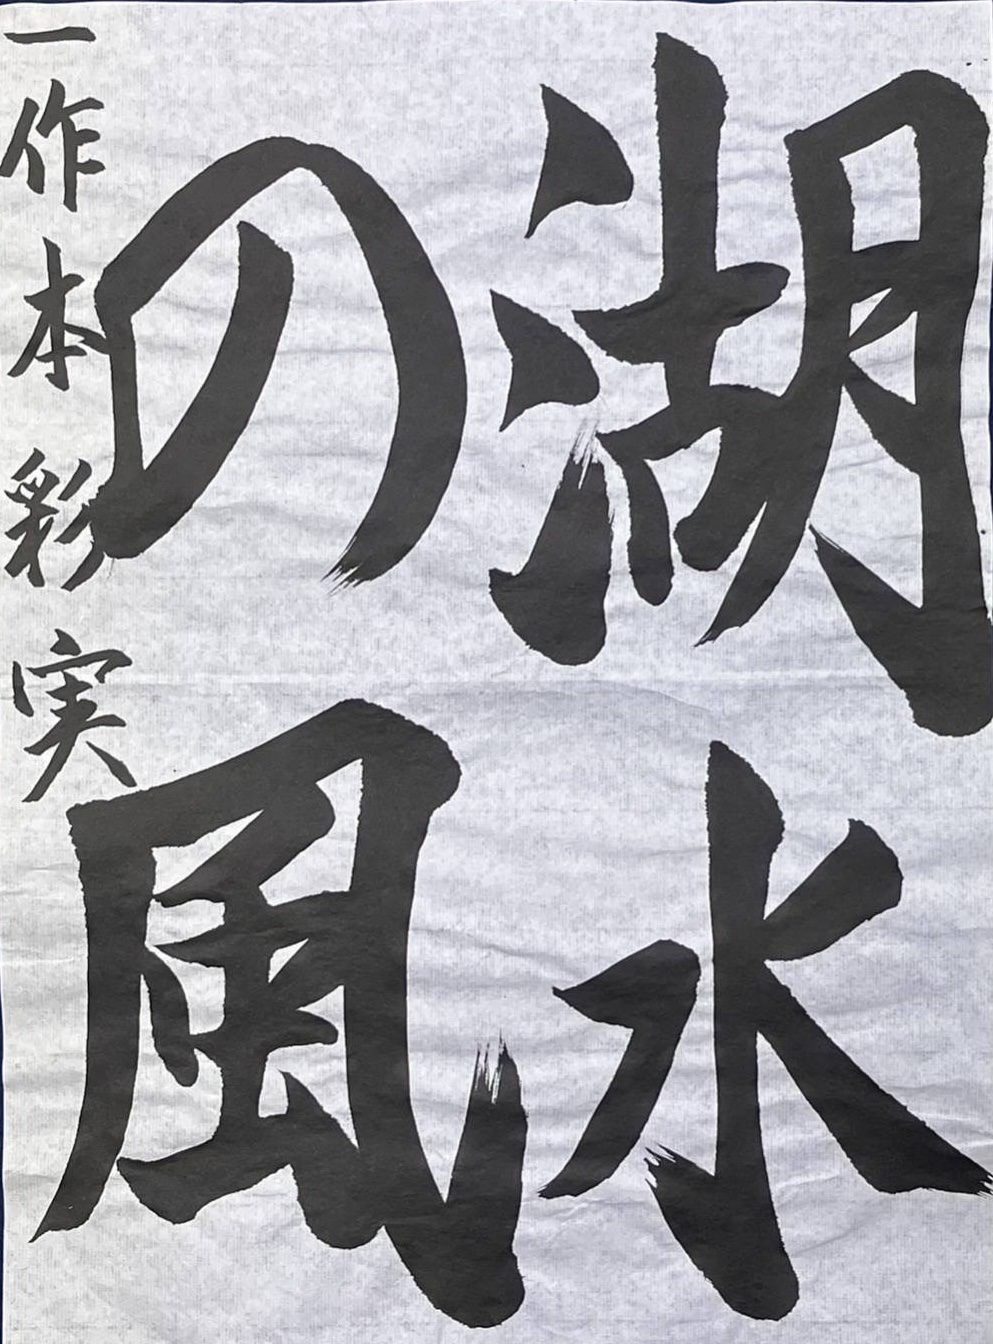 湖水
の風
一作本彩実